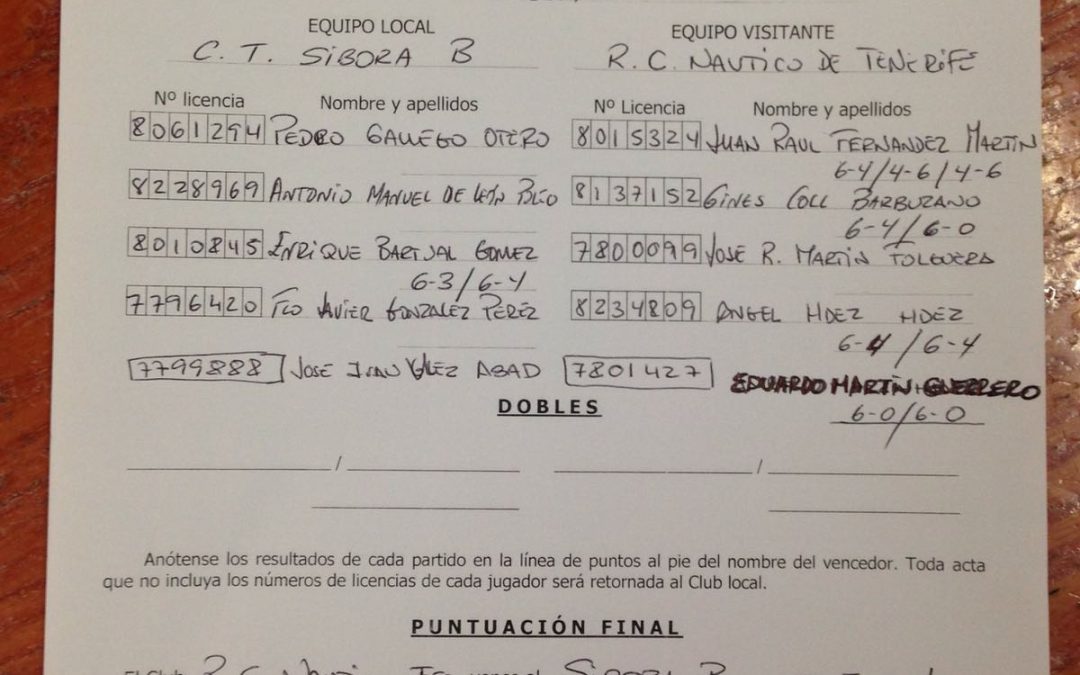 EQUIPO LOCAL EQUIPO VISITANTE
C. T. SIBORA B R. C. NAUTICO DE TENERIFE
Nº licencia Nombre y apellidos Nº Licencia Nombre y apellidos
8061294 PEDRO GALLEGO OTERO 8015324 JUAN RAUL FERNANDEZ MARTIN
6-4/4-6/4-6
8228969 ANTONIO MANUEL DE LEÓN 8137152 GINES COLL BARBUZANO
6-4/6-0
8010845 ENRIQUE GOMEZ 7800099 JOSE R. MARTIN
6-3/6-4
7796420 FCO JAVIER GONZALEZ PEREZ 8234809 ANGEL HDEZ HDEZ
6-4/6-4
7799888 JOSE IVAN ABAD 7801427 EDUARDO MARTIN GUERRERO
DOBLES
6-0/6-0
/ /
Anótense los resultados de cada partido en la línea de puntos al pie del nombre del vencedor. Toda acta
que no incluya los números de licencias de cada jugador será retornada al Club local.
PUNTUACIÓN FINAL